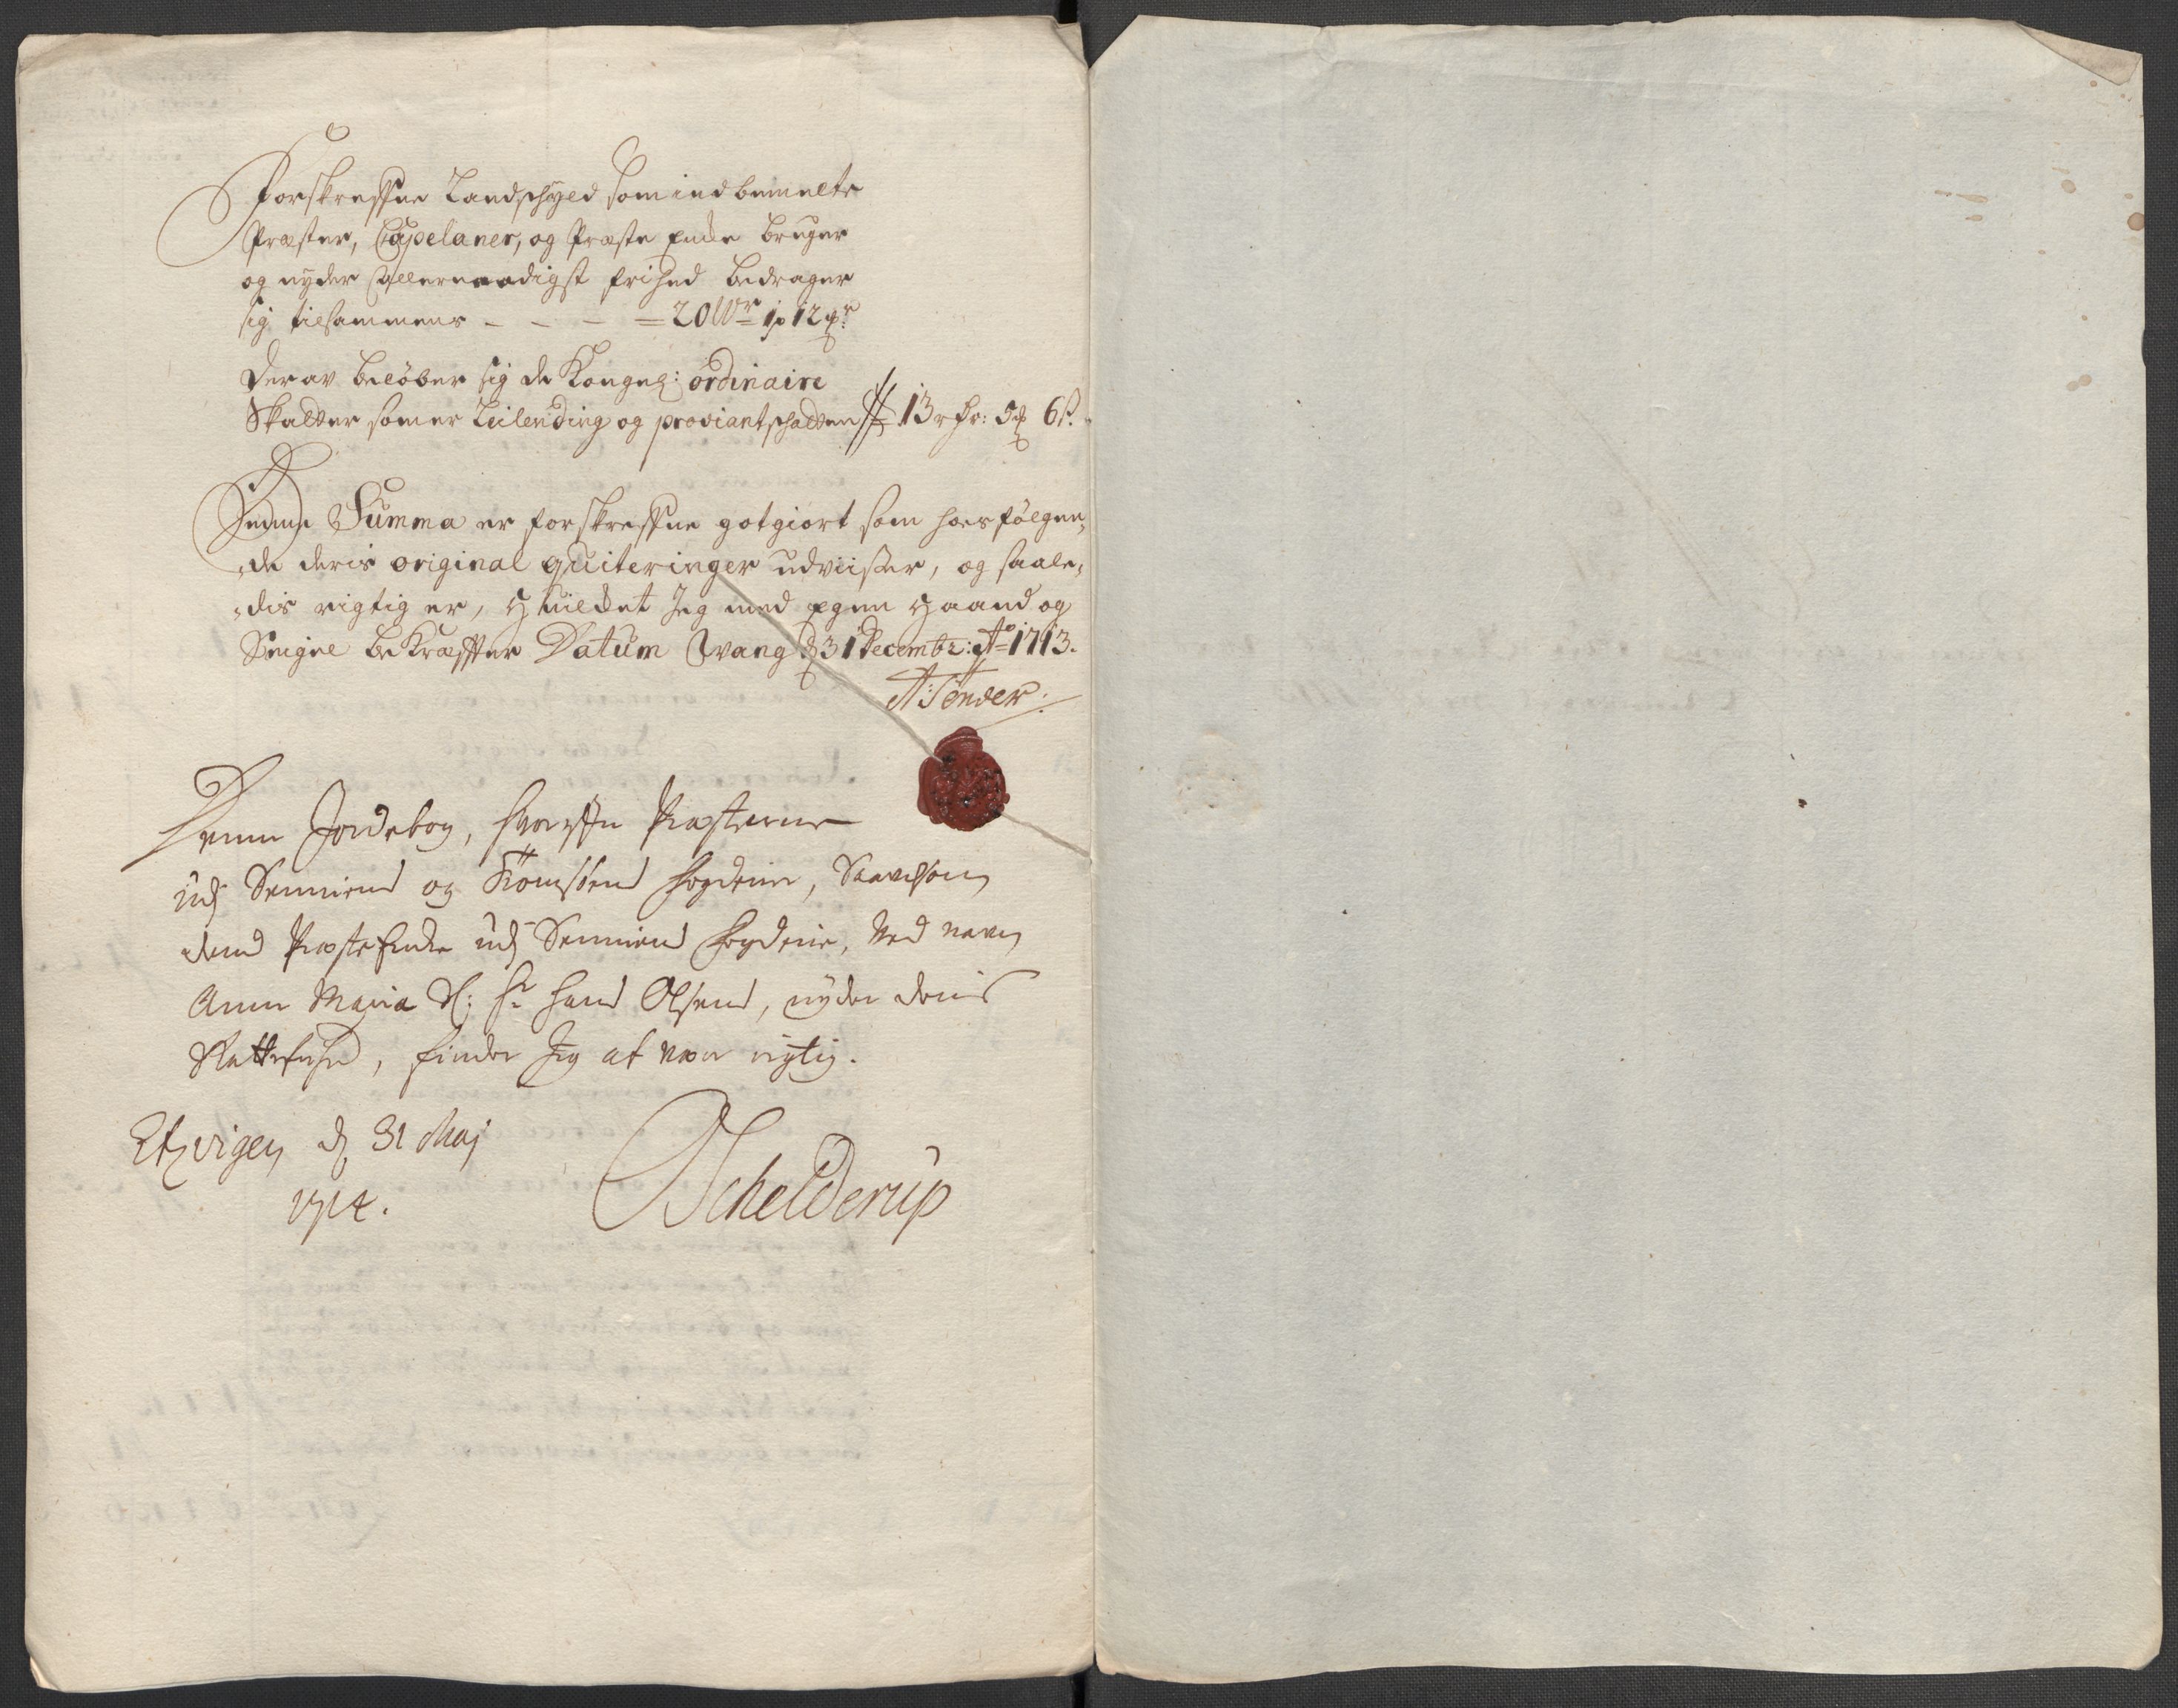 Forskrefne Landschyld som indbemelte
Præster, Capelaner, og Præste Encke bruger
og nyder Allernaadigst frihed bedrager
sig tilsammens - - - = 20 Wr 1 p 12 
Derav beløber sig de Kongel: ordinaire
Skatter som er Leilending og proviantschatten 13 rdr: 5 6 s.
Denne Summa er forskrefne gotgiort som hosfølgen,
,de deris original quiteringer udviisser, og saale,
,dis rigtig er, Huilcket Jeg med Egen Haand og
Seigel bekræffter Datum Qvang d 31 Decembr: Ao 1713.
A: Tønder:
Denne Jordebog, hvoreffter Præsterne
udj Senniens og Tromsøens fogderie, Saavelsom
dend Præste Encke udj Senniens fogderie, Ved navn
Anne Maria Sl: Hr Hans Olsens, nyder deris
Skattefrihed, finder Jeg at være rigtig.
d 31 Maj
1714.
Schelderup